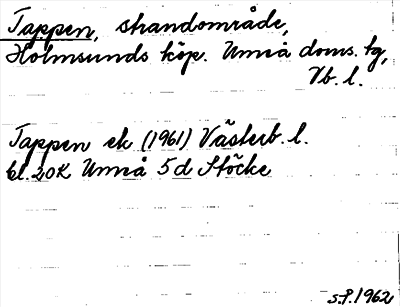 Tappen, strandområde,
Holmsunds köp. Umeå doms. tg,
Vb. l.
Tappen ek (1961) Västerb. l.
bl. 20K Umeå 5d Stöcke
S.P. 1962